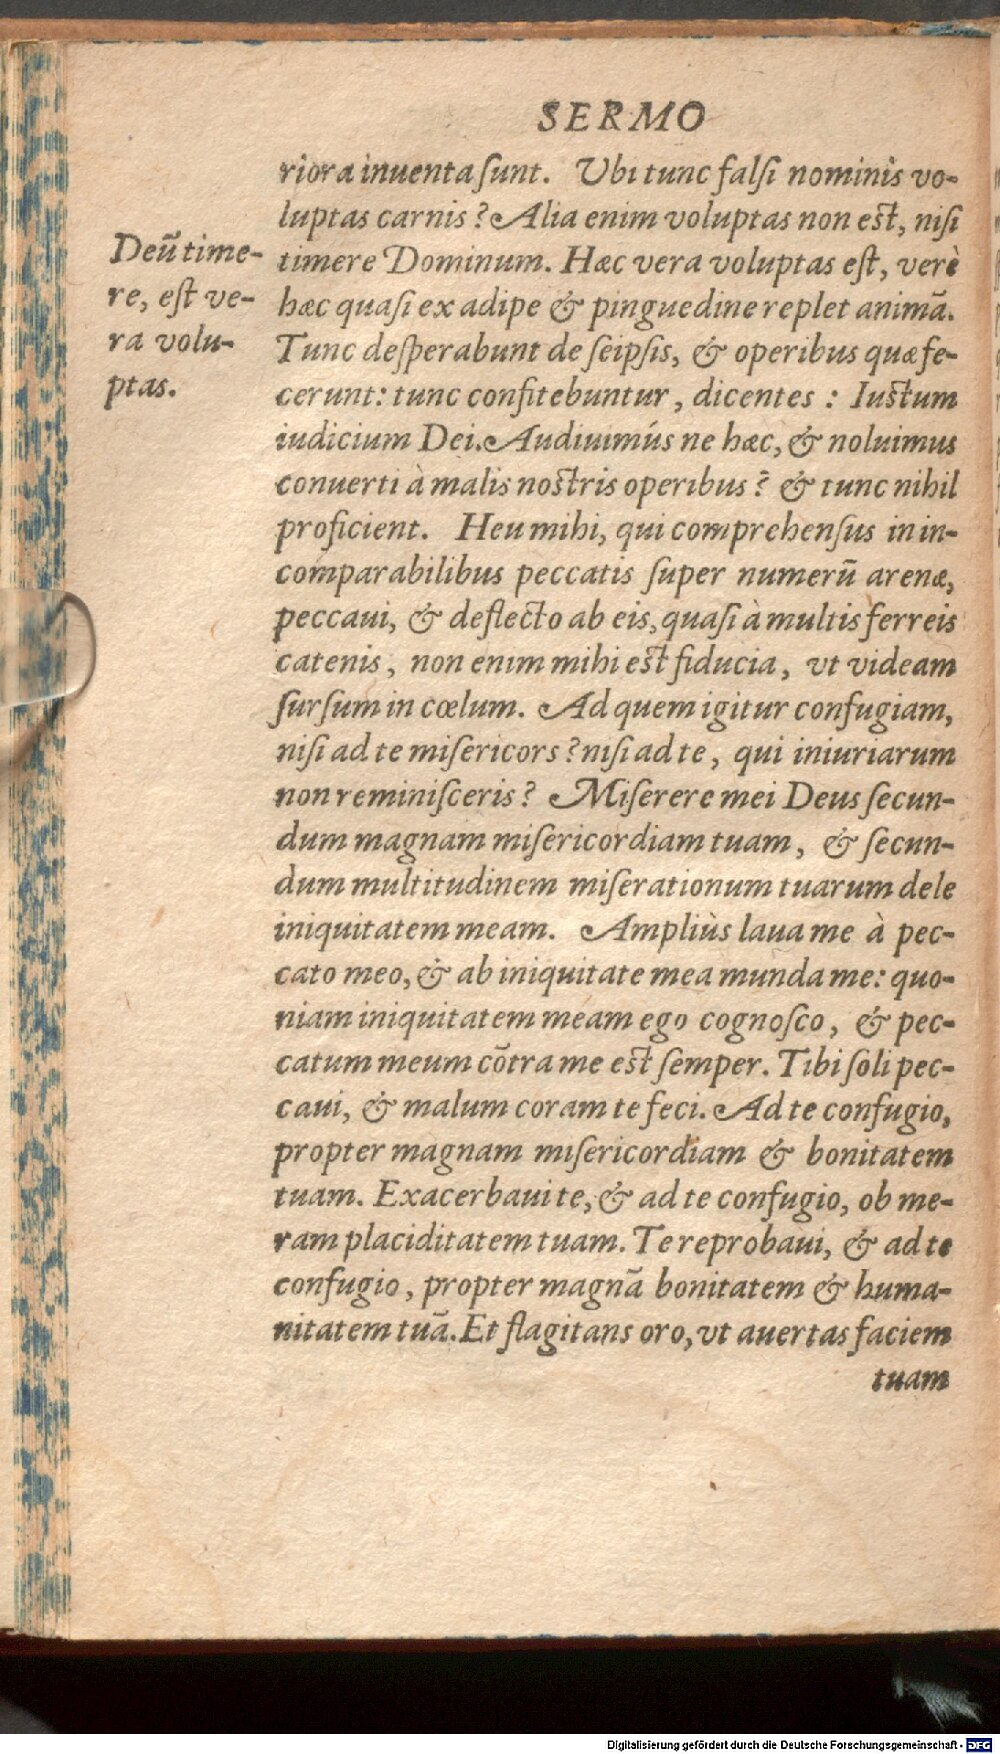 SERMO
riora inuenta ſunt. Vbi tunc falſi nominis vo-
luptas carnis? Alia enim voluptas non eſt, niſi
timere Dominum. Hæc vera voluptas eſt, verè
hæc quaſi ex adipe & pinguedine replet animã.
Tunc deſperabunt de ſeipſis, & operibus quæ fe-
cerunt: tunc confitebuntur, dicentes : Iuſtum
iudicium Dei. Audiuimús ne hæc, & noluimus
conuerti à malis noſtris operibus? & tunc nihil
proficient. Heu mihi, qui comprehenſus in in-
comparabilibus peccatis ſuper numerũ arenæ,
peccaui, & deflecto ab eis, quaſi à multis ferreis
catenis, non enim mihi eſt fiducia, vt videam
ſurſum in cœlum. Ad quem igitur confugiam,
niſi ad te miſericors? niſi ad te, qui iniuriarum
non reminiſceris? Miſerere mei Deus ſecun-
dum magnam miſericordiam tuam, & ſecun-
dum multitudinem miſerationum tuarum dele
iniquitatem meam. Ampliùs laua me à pec-
cato meo, & ab iniquitate mea munda me: quo-
niam iniquitatem meam ego cognoſco, & pec-
catum meum cõtra me eſt ſemper. Tibi ſoli pec-
caui, & malum coram te feci. Ad te confugio,
propter magnam miſericordiam & bonitatem
tuam. Exacerbaui te, & ad te confugio, ob me-
ram placiditatem tuam. Te reprobaui, & ad te
confugio, propter magnã bonitatem & huma-
nitatem tuã. Et flagitans oro, vt auertas faciem
tuam
Deũ time-
re, eſt ve-
ra volu-
ptas.
Digitalisierung gefördert durch die Deutsche Forschungsgemeinschaft - DFG